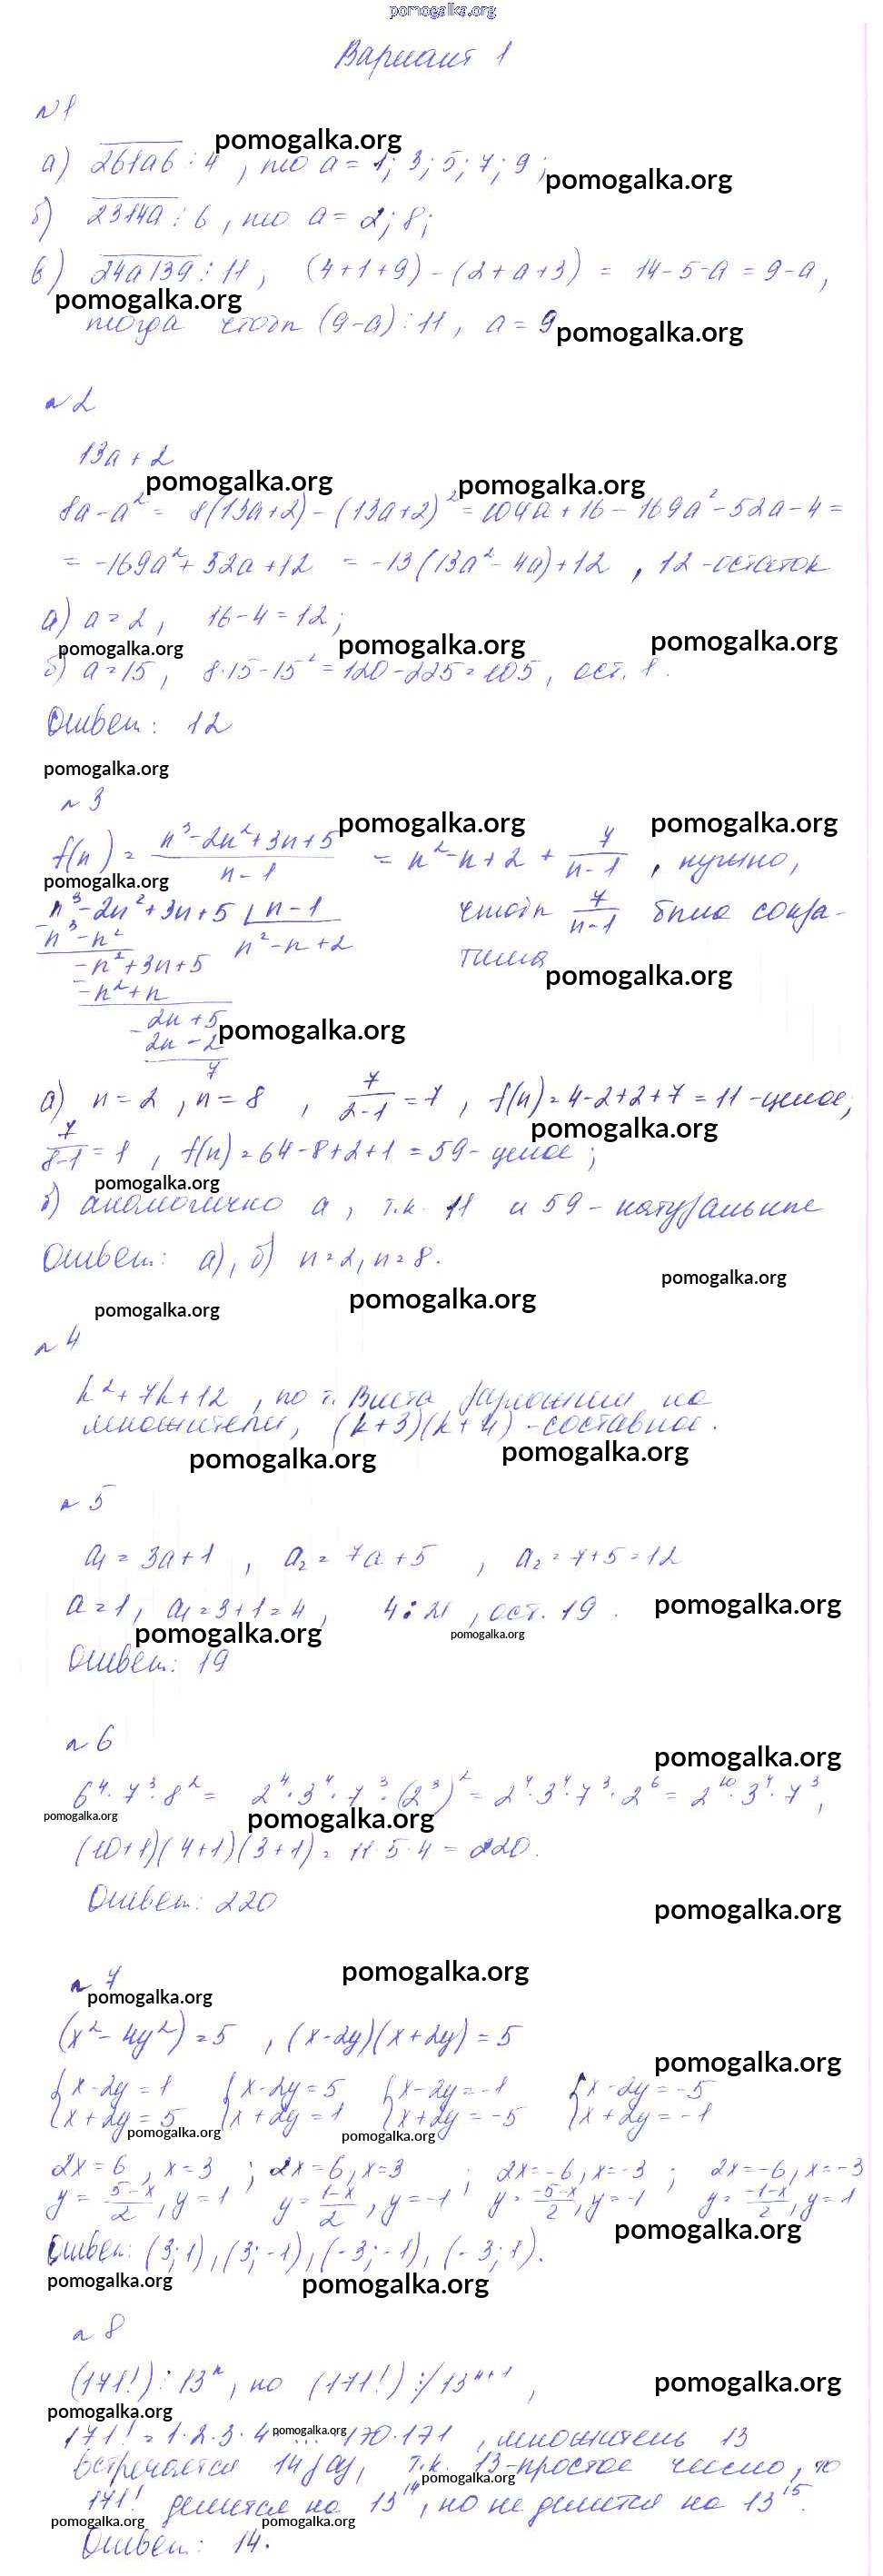 pomogalka.org
Вариант 1
№1
а) 261ab ⋮ 4, то a = 1; 3; 5; 7; 9;
pomogalka.org
pomogalka.org
б) 2314a ⋮ 6, то a = 2; 8;
в) 24a139 ⋮ 11, (4+1+9) - (2+a+3) = 14-5-a = 9-a,
pomogalka.org
тогда чтобы (9-a) ⋮ 11, a = 9
pomogalka.org
№2
13a + 2
pomogalka.org pomogalka.org
8a - a² = 8(13a+2) - (13a+2)² = 104a + 16 - 169a² - 52a - 4 =
= -169a² + 52a + 12 = -13(13a² - 4a) + 12, 12 - остаток
а) a = 2, 16 - 4 = 12;
pomogalka.org pomogalka.org pomogalka.org
б) a = 15, 8·15 - 15² = 120 - 225 = 105, ост. 1.
Ответ: 12
pomogalka.org
№3
pomogalka.org pomogalka.org
f(n) = (n³ - 2n² + 3n + 5)/(n - 1) = n² - n + 2 + 7/(n-1), нужно,
pomogalka.org
n³ - 2n² + 3n + 5 | n - 1 чтобы 7/(n-1) была сокра-
n³ - n² n² - n + 2 тима
-n² + 3n + 5
pomogalka.org
-n² + n
2n + 5
pomogalka.org
2n - 2
7
а) n = 2, n = 8, 7/(2-1) = 7, f(n) = 4-2+2+7 = 11 - целое;
pomogalka.org
7/(8-1) = 1, f(n) = 64-8+2+1 = 59 - целое;
pomogalka.org
б) аналогично а, т.к. 11 и 59 - натуральные
Ответ: а), б) n = 2, n = 8.
pomogalka.org
pomogalka.org pomogalka.org
№4
k² + 7k + 12, по т. Виета разложим на
множители, (k+3)(k+4) - составное.
pomogalka.org pomogalka.org
№5
a₁ = 3a + 1, a₂ = 7a + 5, a₂ = 7+5 = 12
a = 1, a₁ = 3+1 = 4, 4 ⋮ 21, ост. 19.
pomogalka.org
pomogalka.org pomogalka.org
Ответ: 19
№6
pomogalka.org
6⁴·7³·8² = 2⁴·3⁴·7³·(2³)² = 2⁴·3⁴·7³·2⁶ = 2¹⁰·3⁴·7³,
pomogalka.org pomogalka.org
(10+1)(4+1)(3+1) = 11·5·4 = 220.
Ответ: 220
pomogalka.org
pomogalka.org
№7
pomogalka.org
(x² - 4y²) = 5, (x-2y)(x+2y) = 5
pomogalka.org
{x-2y = 1 {x-2y = 5 {x-2y = -1 {x-2y = -5
{x+2y = 5 {x+2y = 1 {x+2y = -5 {x+2y = -1
pomogalka.org pomogalka.org
2x = 6, x = 3; 2x = 6, x = 3; 2x = -6, x = -3; 2x = -6, x = -3
y = (5-x)/2, y = 1 y = (1-x)/2, y = -1; y = (-5-x)/2, y = -1; y = (-1-x)/2, y = 1
pomogalka.org
Ответ: (3; 1), (3; -1), (-3; -1), (-3; 1).
pomogalka.org pomogalka.org
№8
(171!) ⋮ 13ⁿ, но (171!) ⋮/ 13ⁿ⁺¹,
pomogalka.org
pomogalka.org
171! = 1·2·3·4·...·170·171, множитель 13
pomogalka.org
встречается 14 раз, т.к. 13 - простое число, то
pomogalka.org
171! делится на 13¹⁴, но не делится на 13¹⁵.
pomogalka.org pomogalka.org
Ответ: 14.